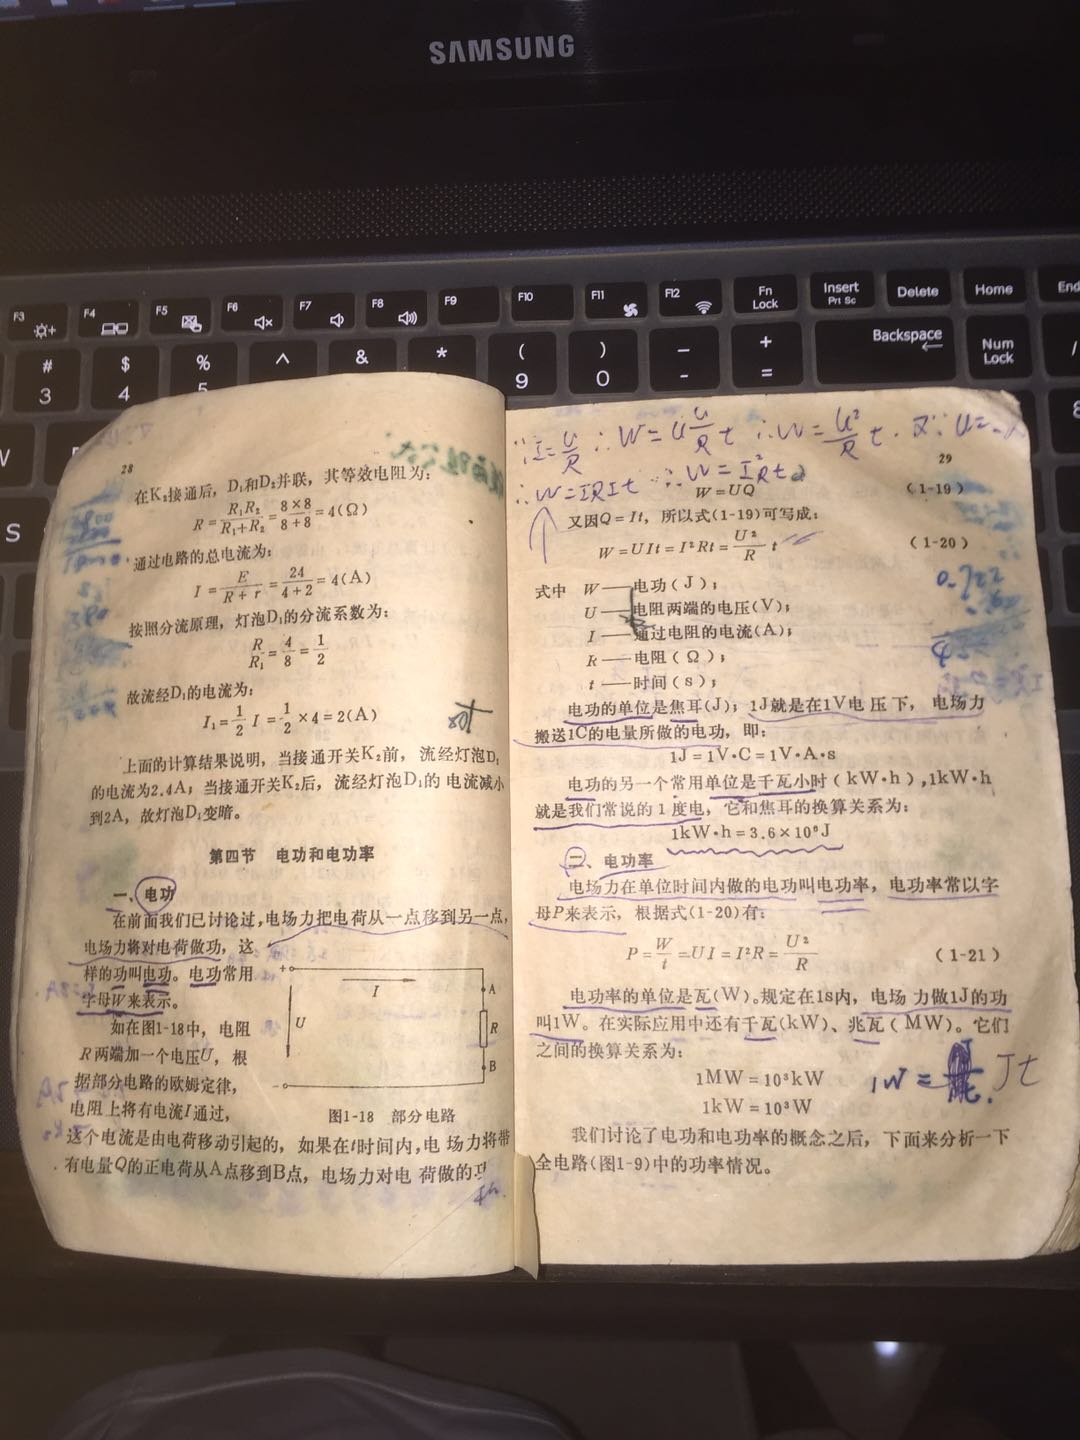 SAMSUNG
F3
F4
F5
F6
F7
F8
F9
F10
F11
F12
Fn Lock
Insert
Prt Sc
Delete
Home
End
# 3
$ 4
% 5
^
&
*
( 9
) 0
– -
+ =
Backspace
Num Lock
S
28
在K₂接通后，D₁和D₂并联，其等效电阻为：
R=R₁R₂/(R₁+R₂)=8×8/(8+8)=4(Ω)
通过电路的总电流为：
I=E/(R+r)=24/(4+2)=4(A)
按照分流原理，灯泡D₁的分流系数为：
R/R₁=4/8=1/2
故流经D₁的电流为：
I₁=1/2 I=1/2×4=2(A)
上面的计算结果说明，当接通开关K₂前，流经灯泡D₁
的电流为2.4A；当接通开关K₂后，流经灯泡D₁的电流减小
到2A，故灯泡D₁变暗。
第四节 电功和电功率
一、电功
在前面我们已讨论过，电场力把电荷从一点移到另一点，
电场力将对电荷做功，这
样的功叫电功。电功常用
字母W来表示。
如在图1-18中，电阻
R两端加一个电压U，根
据部分电路的欧姆定律，
电阻上将有电流I通过，
+
I
U
A
R
B
-
图1-18 部分电路
这个电流是由电荷移动引起的，如果在t时间内，电场力将带
有电量Q的正电荷从A点移到B点，电场力对电荷做的功
∵I=U/R ∴W=U U/R t ∴W=U²/R t. 又∵U=
29
∴W=IRIt ∴W=I²Rt
W=UQ (1-19)
又因Q=It，所以式(1-19)可写成：
W=UIt=I²Rt=U²/R t (1-20)
式中 W——电功(J)；
U——电阻两端的电压(V)；
I——通过电阻的电流(A)；
R——电阻(Ω)；
t——时间(s)；
电功的单位是焦耳(J)；1J就是在1V电压下，电场力
搬送1C的电量所做的电功，即：
1J=1V·C=1V·A·s
电功的另一个常用单位是千瓦小时(kW·h)，1kW·h
就是我们常说的1度电，它和焦耳的换算关系为：
1kW·h=3.6×10⁶J
二、电功率
电场力在单位时间内做的电功叫电功率，电功率常以字
母P来表示，根据式(1-20)有：
P=W/t=UI=I²R=U²/R (1-21)
电功率的单位是瓦(W)。规定在1s内，电场力做1J的功
叫1W。在实际应用中还有千瓦(kW)、兆瓦(MW)。它们
之间的换算关系为：
1MW=10³kW
1kW=10³W
1W= Jt
我们讨论了电功和电功率的概念之后，下面来分析一下
全电路(图1-9)中的功率情况。